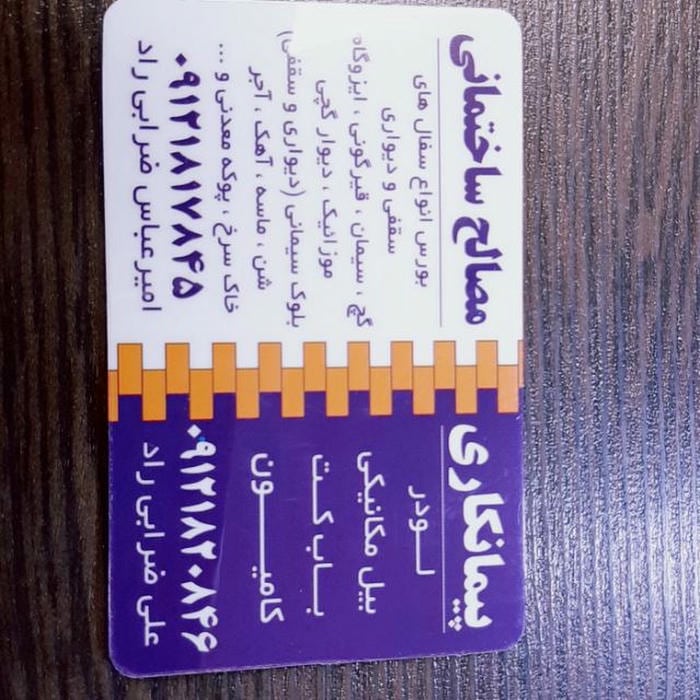 مصالح ساختمانی
بورس انواع سفال های
سقفی و دیواری
گچ ، سیمان ، قیرگونی ، ایزوگام
موزائیک ، دیوار گچی
بلوک سیمانی (دیواری و سقفی)
شن ، ماسه ، آهک ، آجر
خاک سرخ ، پوکه معدنی و ...
۰۹۱۲۱۸۱۷۸۴۵
امیرعباس ضرابی راد
پیمانکاری
لـودر
بیل مکانیکی
بـاب کـت
کامیـــون
۰۹۱۲۱۸۲۰۸۴۶
علی ضرابی راد